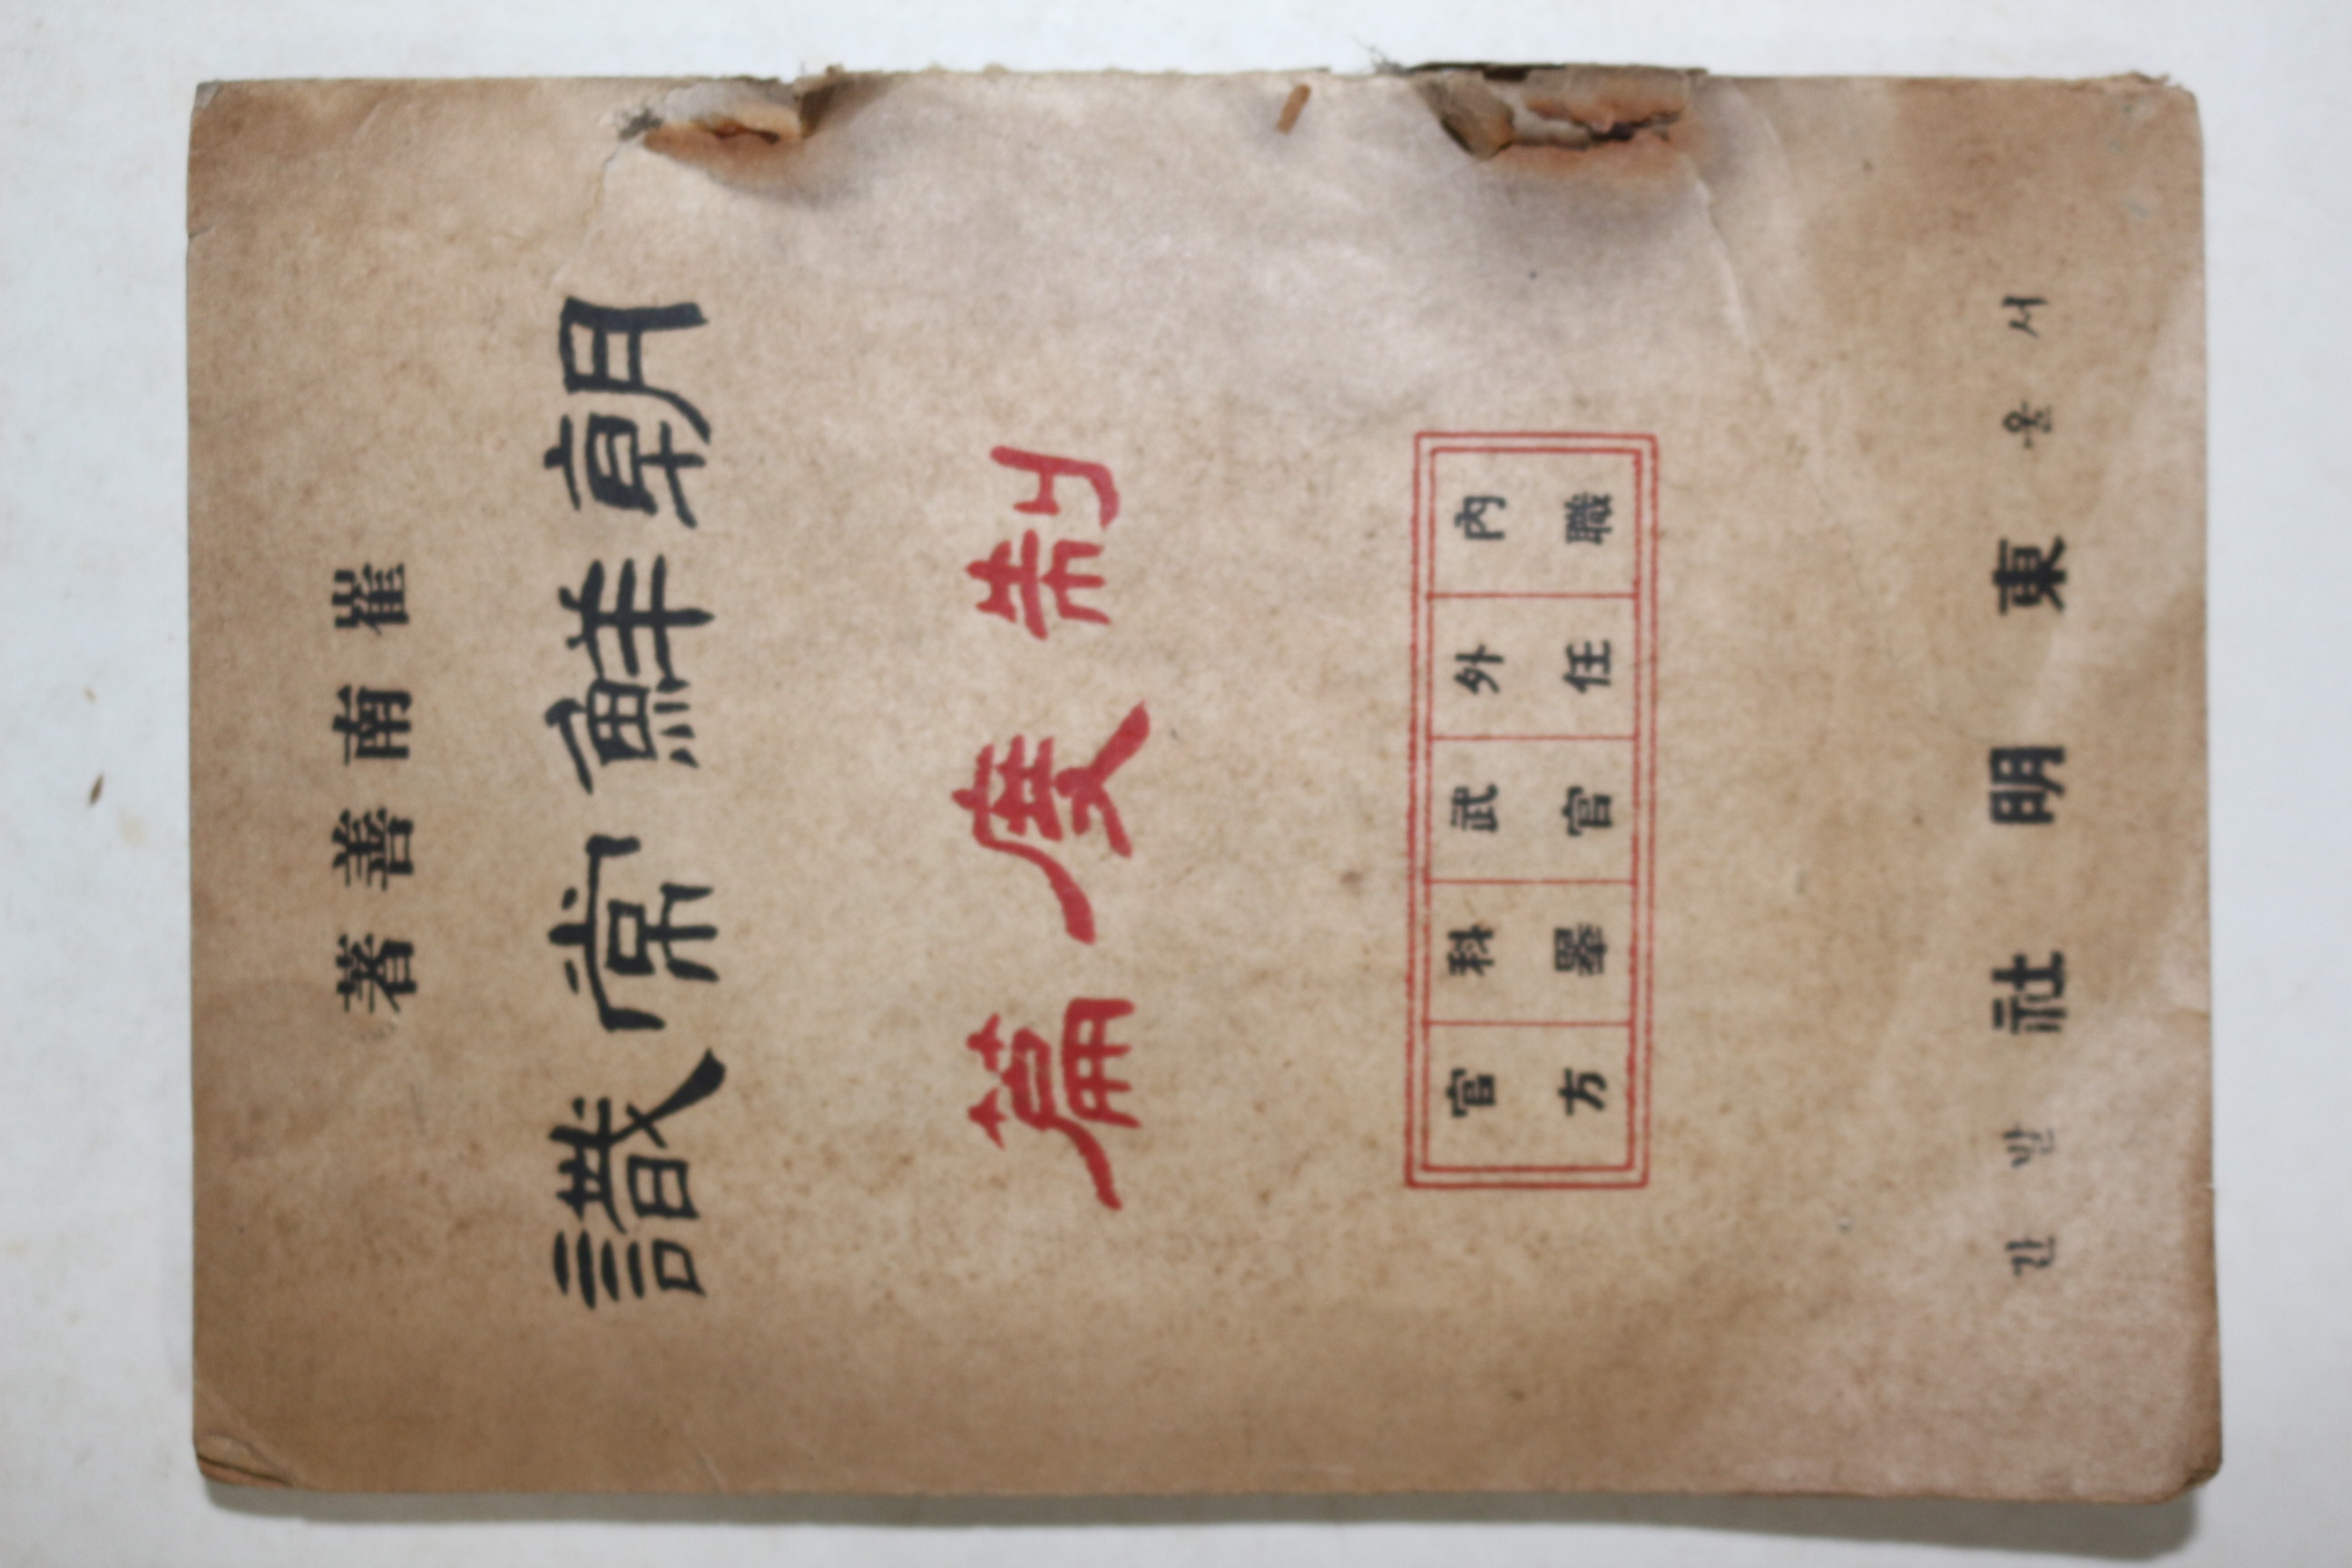 崔南善著
朝鮮常識
制度篇
內職
外任
武官
科擧
官方
서울 東明社 발간